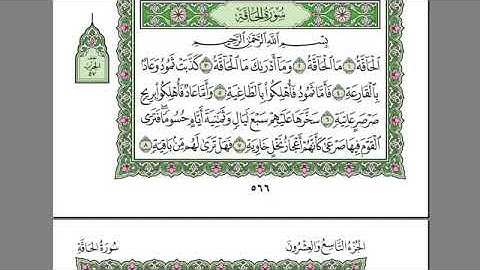 سُورَةُ الحَاقَّةِ
بِسْمِ اللَّهِ الرَّحْمَٰنِ الرَّحِيمِ
الْحَاقَّةُ ١ مَا الْحَاقَّةُ ٢ وَمَا أَدْرَىٰكَ مَا الْحَاقَّةُ ٣ كَذَّبَتْ ثَمُودُ وَعَادٌ
بِالْقَارِعَةِ ٤ فَأَمَّا ثَمُودُ فَأُهْلِكُوا بِالطَّاغِيَةِ ٥ وَأَمَّا عَادٌ فَأُهْلِكُوا بِرِيحٍ
صَرْصَرٍ عَاتِيَةٍ ٦ سَخَّرَهَا عَلَيْهِمْ سَبْعَ لَيَالٍ وَثَمَٰنِيَةَ أَيَّامٍ حُسُومًا فَتَرَى
الْقَوْمَ فِيهَا صَرْعَىٰ كَأَنَّهُمْ أَعْجَازُ نَخْلٍ خَاوِيَةٍ ٧ فَهَلْ تَرَىٰ لَهُم مِّن بَاقِيَةٍ ٨
الحِزْب
٥٧
٥٦٦
الجُزْءُ التَّاسِعُ وَالعِشْرُونَ
سُورَةُ الحَاقَّةِ